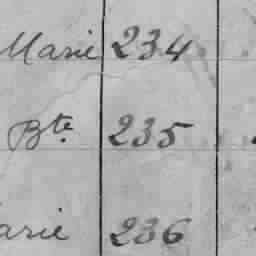 Marie 234
Bte 235
arie 236